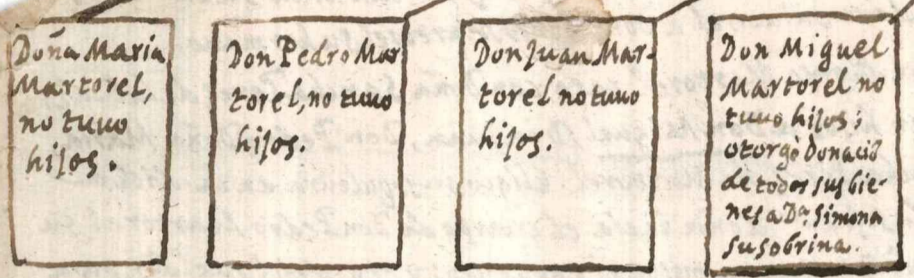 Doña Maria
Martorel,
no tuuo
hijos.
Don Pedro Mar
torel, no tuuo
hijos.
Don Juan Mar-
torel no tuuo
hijos.
Don Miguel
Martorel no
tuuo hijos;
otorgò Donació
de todos sus bie-
nes a Dª. Simona
su sobrina.